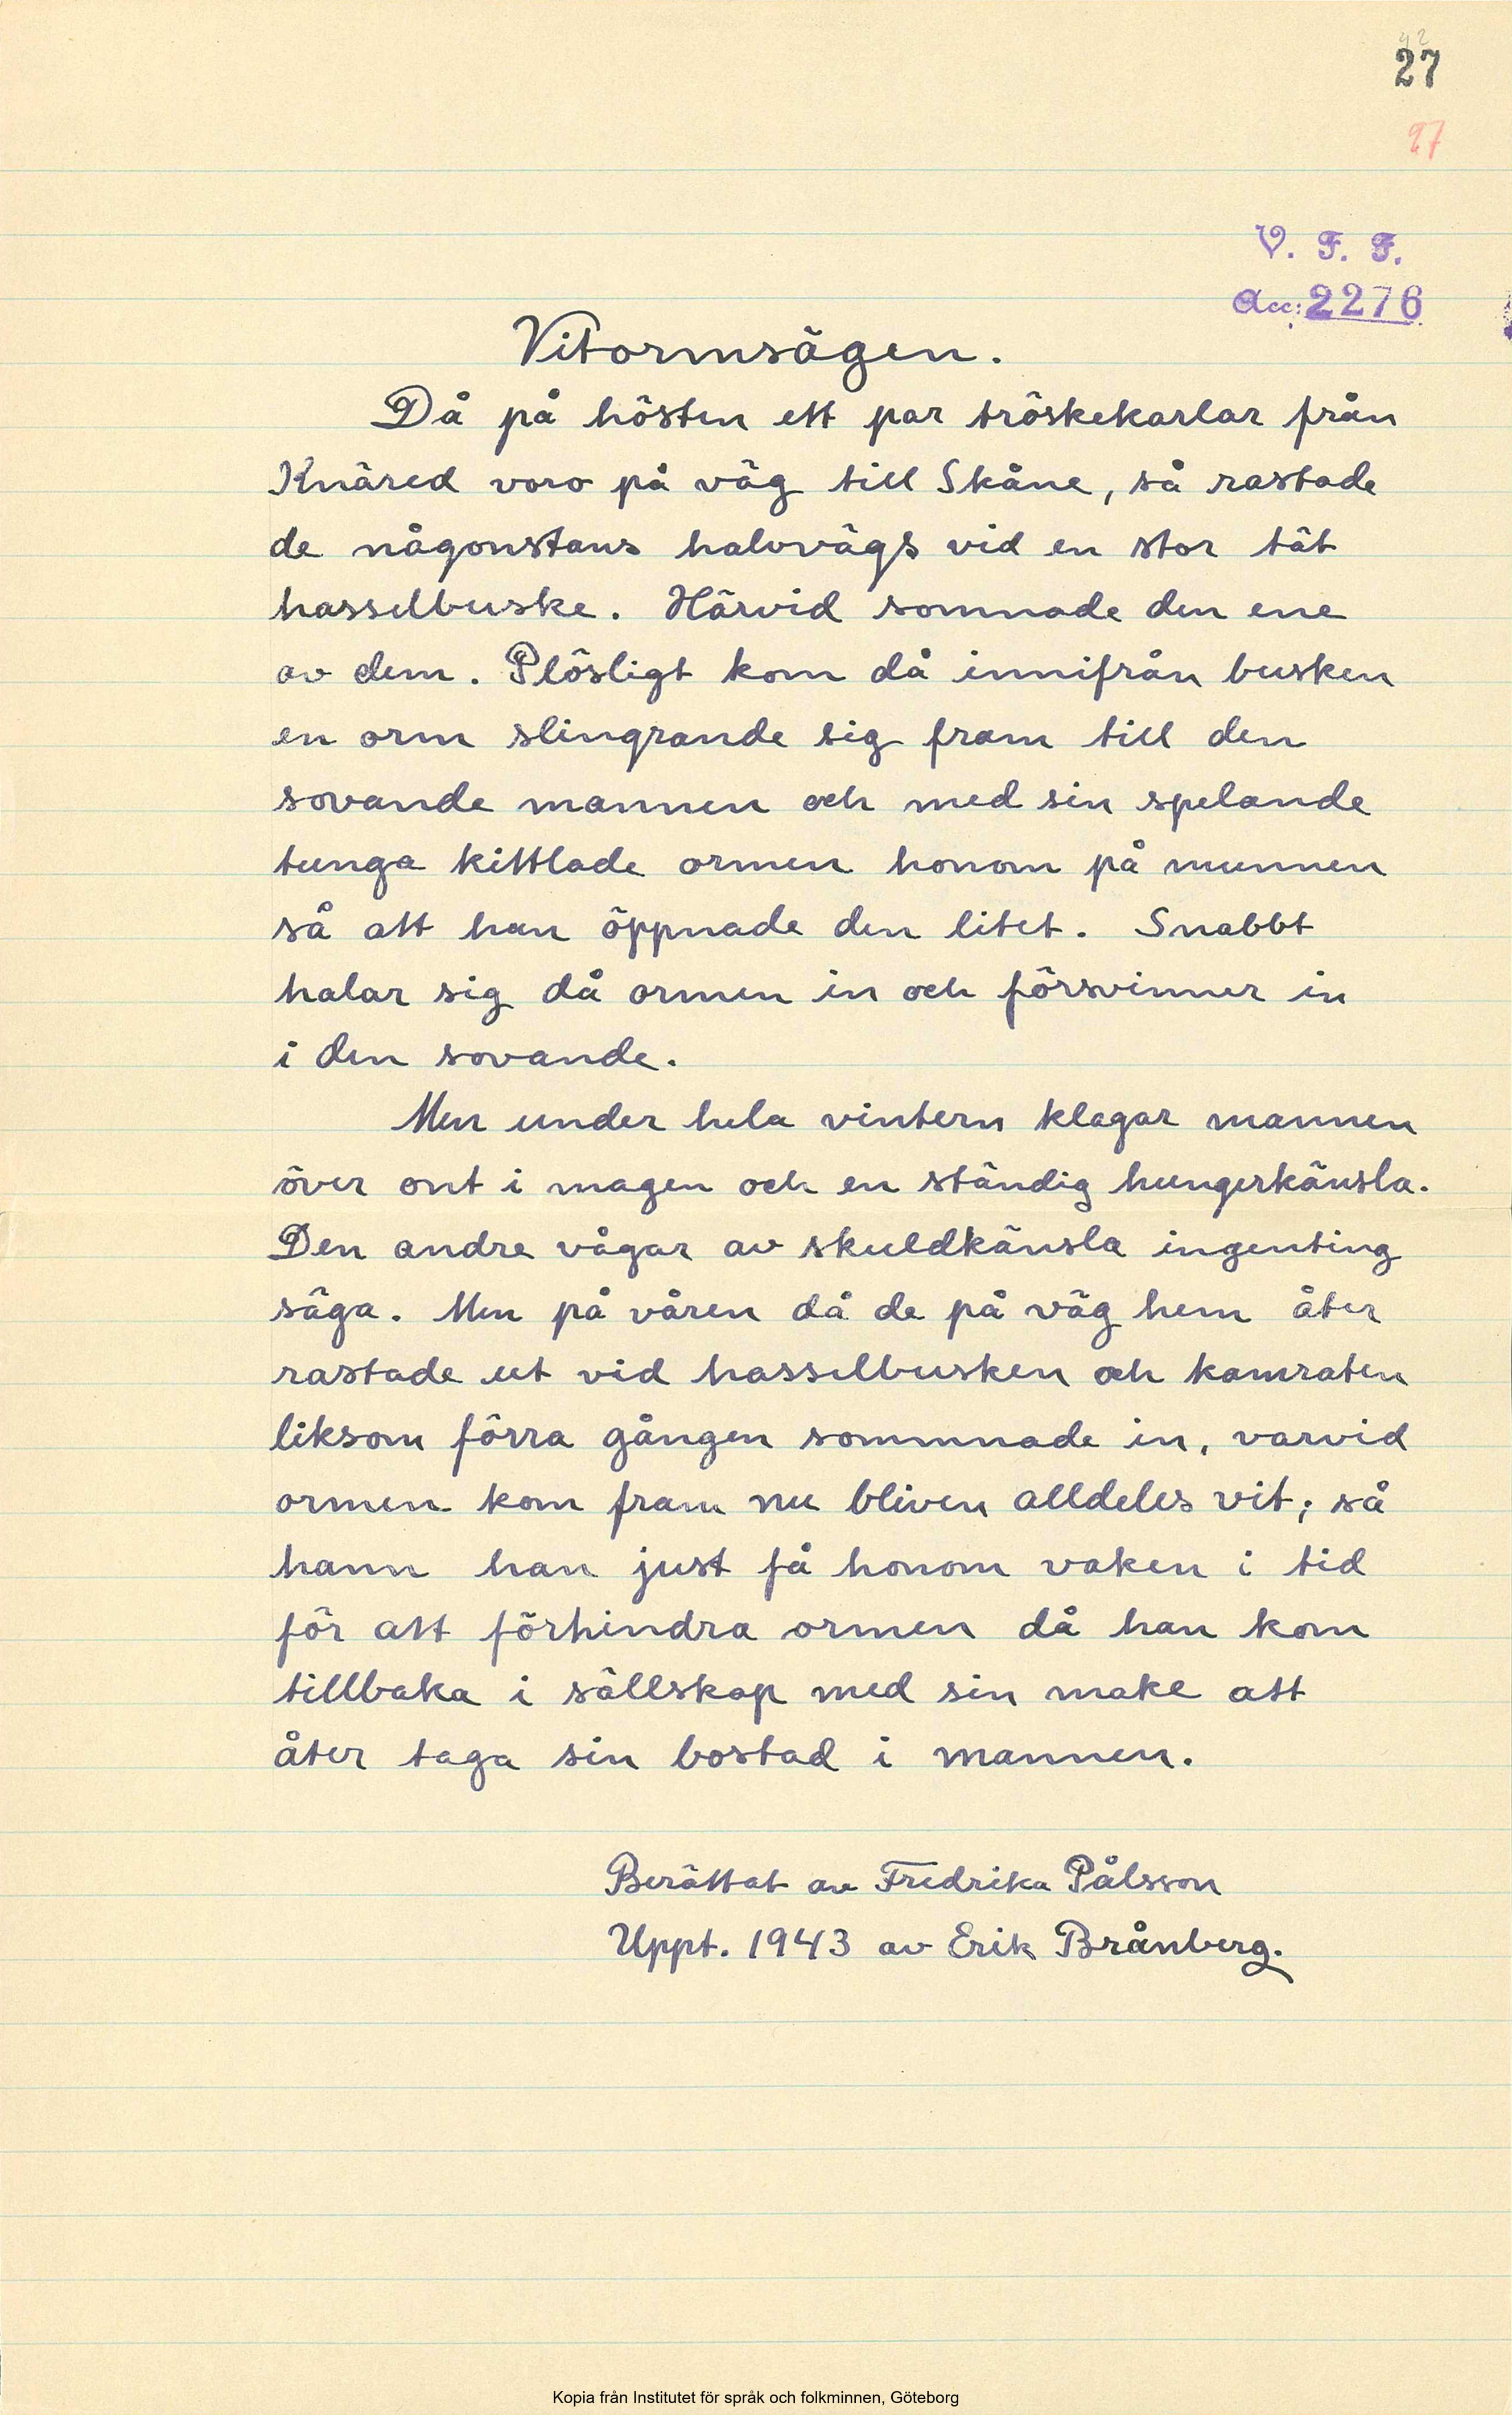 27
27
V. F. F.
Acc: 2276
Vitormsägen.
Då på hösten ett par tröskekarlar från
Knäred voro på väg till Skåne, så rastade
de någonstans halvvägs vid en stor tät
hasselbuske. Härvid somnade den ene
av dem. Plösligt kom då innifrån busken
en orm slingrande sig fram till den
sovande mannen och med sin spelande
tunga kittlade ormen honom på munnen
så att han öppnade den litet. Snabbt
halar sig då ormen in och försvinner in
i den sovande.
Men under hela vintern klagar mannen
över ont i magen och en ständig hungerkänsla.
Den andre vågar av skuldkänsla ingenting
säga. Men på våren då de på väg hem åter
rastade ut vid hasselbusken och kamraten
liksom förra gången sommnade in, varvid
ormen kom fram nu bliven alldeles vit; så
hann han just få honom vaken i tid
för att förhindra ormen då han kom
tillbaka i sällskap med sin make att
åter taga sin bostad i mannen.
Berättat av Fredrika Pålsson
Uppt. 1943 av Erik Brånberg.
Kopia från Institutet för språk och folkminnen, Göteborg